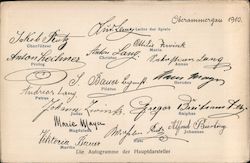 Oberammergau 1910.
Leiter der Spiele
Jakob Rutz
Ottilie Zwink
Chorführer
Maria
Anton Lechner
Anton Lang
Sebastian Lang
Prolog
Christus
Annas
J. Bauer
Hans Mayr
Andreas Lang
Pilatus
Herodes
Petrus
Johann Zwink
Gregor Breitsamter
Judas
Kaiphas
Marie Mayr
Alfred Bierling
Magdalena
Johannes
Viktoria Bauer
Martha
Die Autogramme der Hauptdarsteller